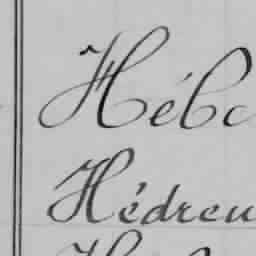 Héb
Hédreu